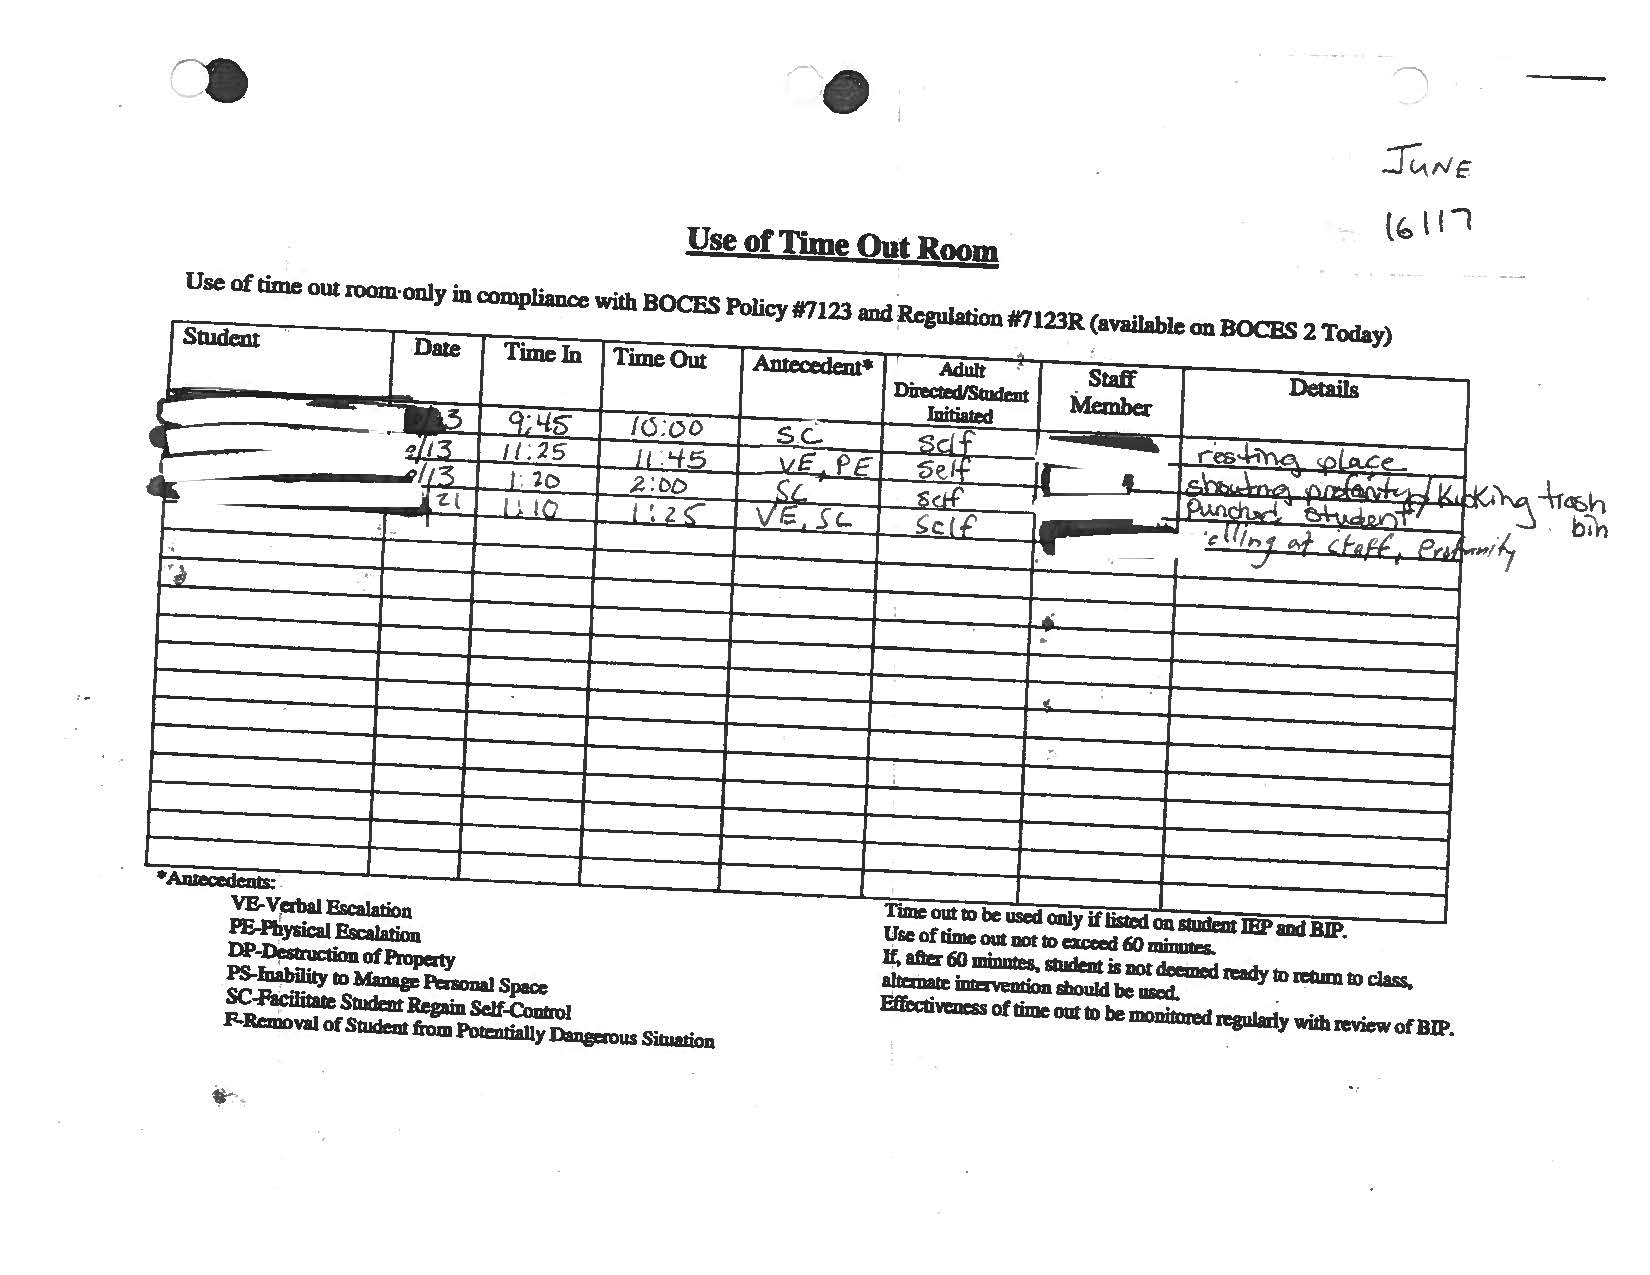 JUNE
16/17
Use of Time Out Room
Use of time out room only in compliance with BOCES Policy #7123 and Regulation #7123R (available on BOCES 2 Today)
Student Date Time In Time Out Antecedent* Adult Directed/Student Initiated Staff Member Details
9:45 10:00 SC self resting place
/13 11:25 11:45 VE, PE self shouting profanity/kicking trash bin
/13 1:20 2:00 SC self punched student
21 1:10 1:25 VE, SC self elling at staff, profanity
*Antecedents:
VE-Verbal Escalation
PE-Physical Escalation
DP-Destruction of Property
PS-Inability to Manage Personal Space
SC-Facilitate Student Regain Self-Control
F-Removal of Student from Potentially Dangerous Situation
Time out to be used only if listed on student IEP and BIP.
Use of time out not to exceed 60 minutes.
If, after 60 minutes, student is not deemed ready to return to class,
alternate intervention should be used.
Effectiveness of time out to be monitored regularly with review of BIP.